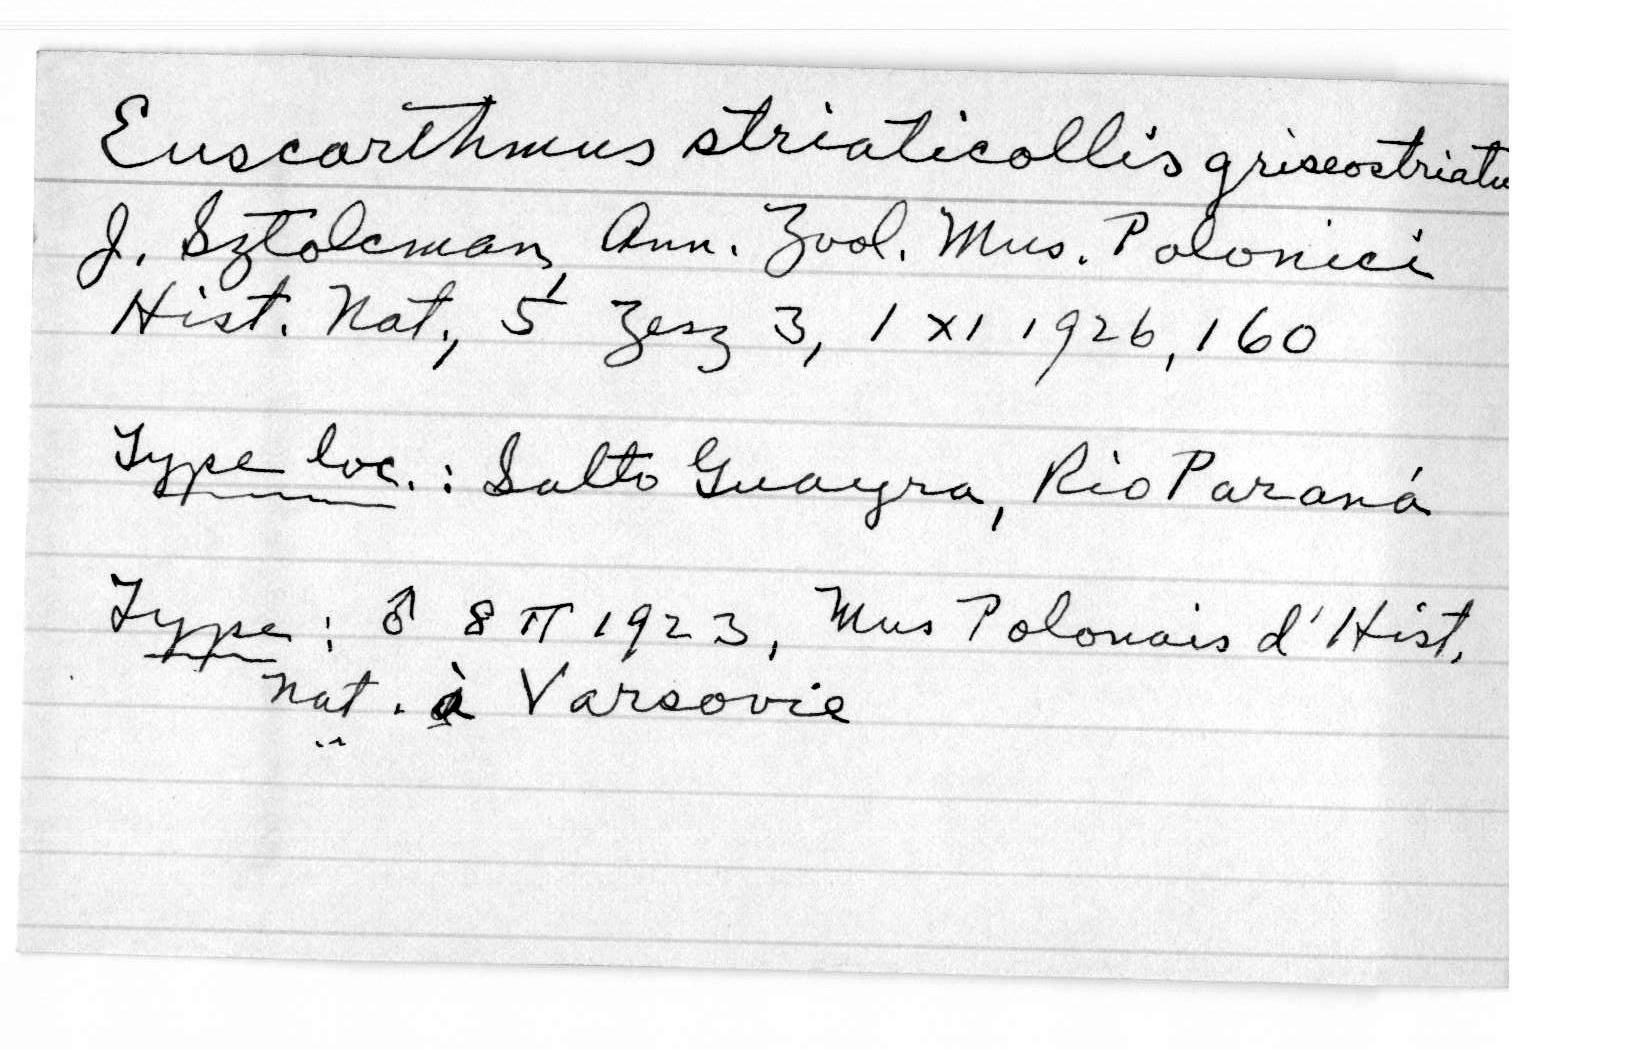 Euscarthmus striaticollis griseostriatu
J. Sztolcman, Ann. Zool. Mus. Polonici
Hist. Nat., 5 Zesz 3, 1 XI 1926, 160
Type loc.: Salto Guayra, Rio Paraná
Type: ♂ 8 II 1923, Mus Polonais d'Hist.
Nat. à Varsovie